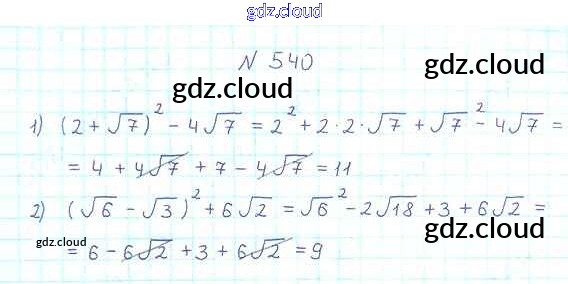 gdz.cloud
N 540
gdz.cloud gdz.cloud
1) (2 + √7)² - 4√7 = 2² + 2·2·√7 + √7² - 4√7 =
= 4 + 4√7 + 7 - 4√7 = 11
2) (√6 - √3)² + 6√2 = √6² - 2√18 + 3 + 6√2 =
gdz.cloud gdz.cloud
= 6 - 6√2 + 3 + 6√2 = 9